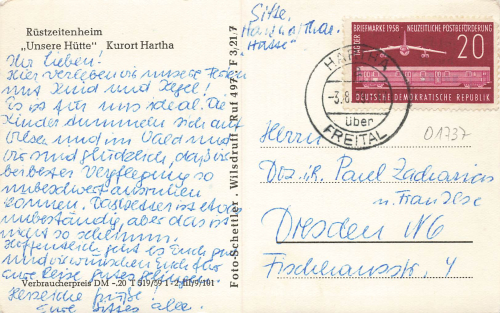 Rüstzeitenheim
„Unsere Hütte" Kurort Hartha
Ihr Lieben!
Hier verleben wir unsere Ferien
mit Kind und Kegel!
Es ist für uns ideal. Die
Kinder tummeln sich auf
Wiesen und im Wald und
wir sind glücklich, daß wir
bei bester Verpflegung so
unbeschwert ausruhen
können. Das Wetter ist etwas
unbeständig, aber das ist
nicht so schlimm.
Hoffentlich geht es Euch gut
und wir wünschen Euch für
eure Reise gutes Gelingen.
Verbraucherpreis DM -.20 T 319/59 I-2 III/9/101
Herzliche Grüße!
Eure Sittes alle.
Foto-Schettler · Wilsdruff / Ruf 497 / F 3,21,7
Sitte,
Hartha
"Hütte"
TAG DER BRIEFMARKE 1958 · NEUZEITLICHE POSTBEFÖRDERUNG
20
DEUTSCHE DEMOKRATISCHE REPUBLIK
HARTHA
-3.8
über
FREITAL
01737
Herrn
Paul Zacharias
Dresden N6
Fischhausstr. 4